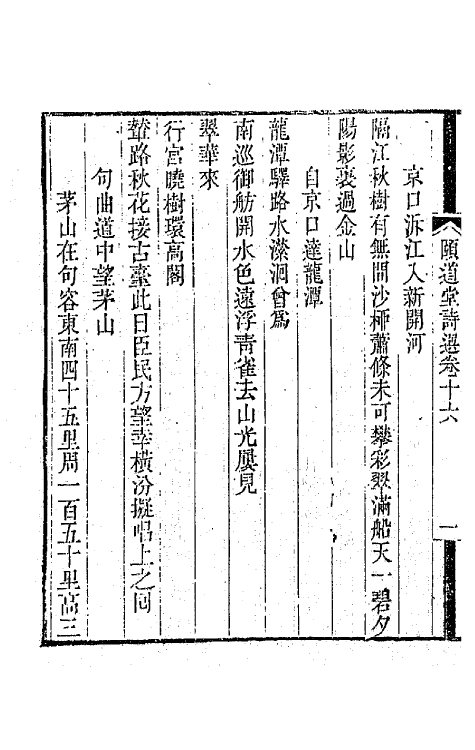 頤道堂詩選卷十六
一
京口泝江入新開河
隔江秋樹有無間沙桺蕭條未可攀彩翠滿船天一碧夕
陽影裏過金山
自京口達龍潭
龍潭驛路水瀠洄曾爲
南巡御舫開水色遠浮靑雀去山光屢見
翠華來
行宮曉樹環高閣
輦路秋花接古臺此日臣民方望幸橫汾擬唱上之回
句曲道中望茅山
茅山在句容東南四十五里周一百五十里高三